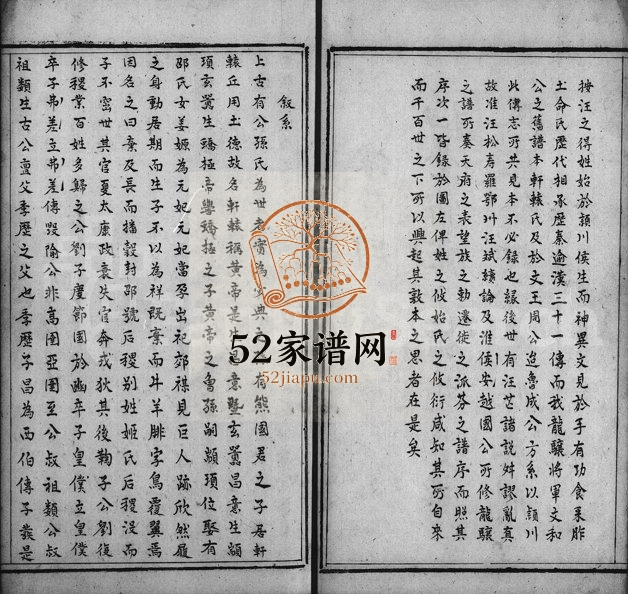 按汪之得姓始於頴川侯生而神異文見於手有功食采胙
土命氏歷代相承歷秦逾漢三十一傳而我龍驤將軍文和
公之舊譜本軒轅氏及於文王周公迨魯成公方系以頴川
此傳志所共見本不必錄也緣後世有汪芒諸說舛謬亂真
故准汪松壽羅鄂州汪斌績論及淮侯安越國公所修龍驤
之譜所奏天府之表望族之勅遷徙之派芬之譜序而照其
序次一皆錄於圖左俾姓之攸始氏之攸衍咸知其所自來
而千百世之下所以興起其敦本之思者在是矣
叙系
上古有公孫氏為世 有熊國君之子居軒
轅丘用土德故名軒轅稱黃帝是生昌意暨玄囂昌意生顓
頊玄囂生蟜極帝嚳蟜極之子黃帝之曾孫嗣顓頊位娶有
邰氏女姜嫄為元妃元妃當孕出祀郊禖見巨人跡欣然履
之身動居期而生子不以為祥既棄而牛羊腓字鳥覆翼焉
因名之曰棄及長而播穀封邰號后稷別姓姬氏后稷没而
子不窋世其官夏太康政衰失官奔戎狄其後鞠子公劉復
修稷業百姓多歸之公劉子慶節國於豳卒子皇僕立皇僕
卒子弗差立弗差傳毀隃公非高圉亞圉至公叔祖類公叔
祖類生古公亶父季歷之父也季歷子昌為西伯傳子發是
52家谱网
52jiapu.com